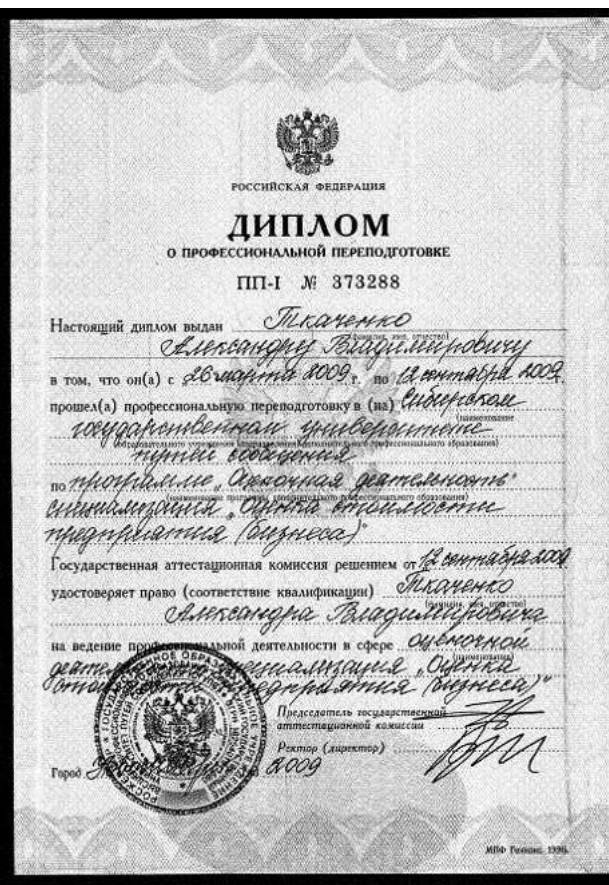 РОССИЙСКАЯ ФЕДЕРАЦИЯ
ДИПЛОМ
О ПРОФЕССИОНАЛЬНОЙ ПЕРЕПОДГОТОВКЕ
ПП-I № 373288
Настоящий диплом выдан Ткаченко
(фамилия, имя, отчество)
Александру Владимировичу
в том, что он(а) с 26 марта 2009 г. по 12 сентября 2009
прошел(а) профессиональную переподготовку в (на) Сибирском
(наименование
государственном университете
образовательного учреждения (подразделения) дополнительного профессионального образования)
путей сообщения
по программе „Оценочная деятельность"
(наименование программы дополнительного профессионального образования)
специализация „Оценка стоимости
предприятия (бизнеса)"
Государственная аттестационная комиссия решением от 12 сентября 2009
удостоверяет право (соответствие квалификации) Ткаченко
(фамилия, имя, отчество)
Александра Владимировича
на ведение профессиональной деятельности в сфере оценочной
(наименование)
специализация „Оценка
предприятия (бизнеса)"
Председатель государственной
аттестационной комиссии
Ректор (директор)
Город 2009
МПФ Гознак. 1996.